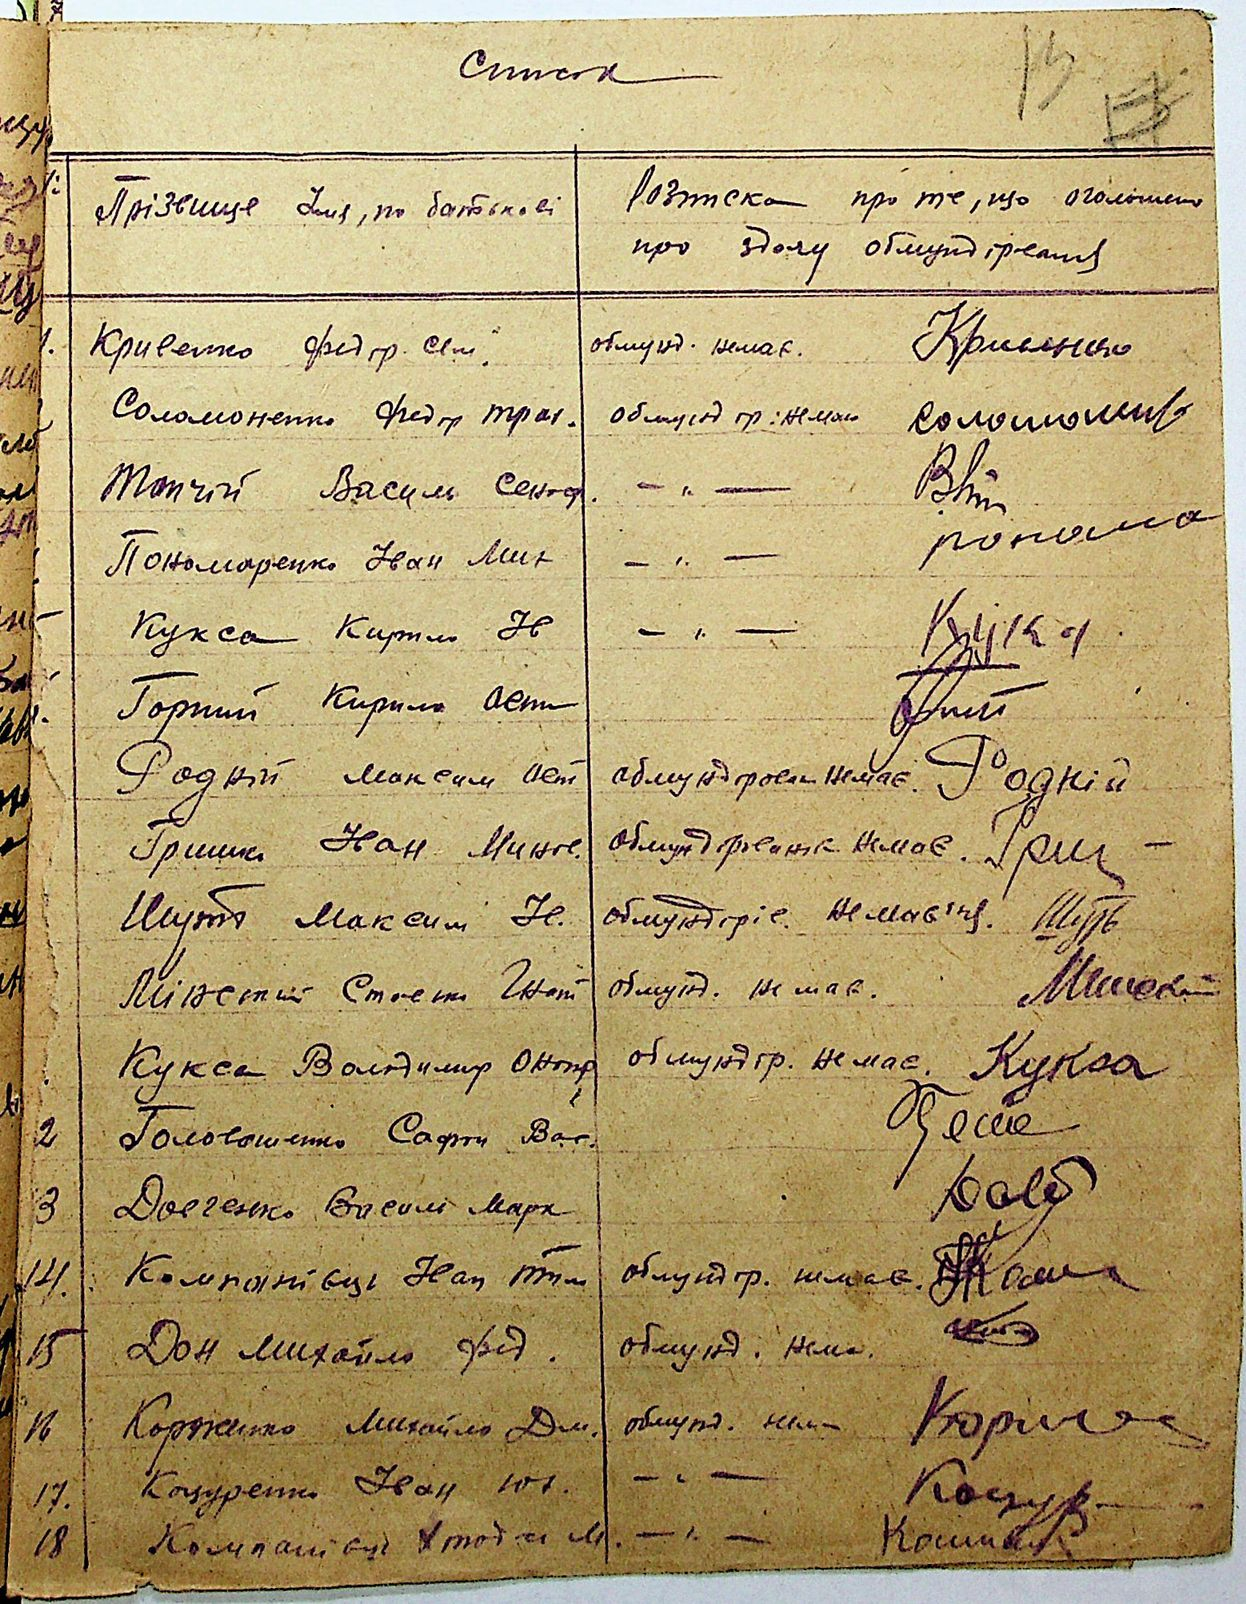 Список
13
Прізвище Імя, по батькові
Розписка про те, що оголошено
про здачу обмундірвання
1. Кривенко Федір Сем. обмунд. немає. Кривенко
Соломоненко Федір Трох. обмундір. немає
Топчій Василь Сеноф. — " —
Пономаренко Іван Мит — " — понома
Кукса Кирило Ів — " — Кукса
Горний Кирило Ост
Родній Максим Ост обмундірован немає. Родній
Гришко Іван Минов. обмундірвання немає. Гриш
Шуть Максим Ів. обмундірів. немаєця. Шуть
Мінский Степан Гнат обмунд. немає.
Кукса Володимир Онопр обмундір. немає. Кукса
2 Головашенко Сафон Вас.
3 Довгенко Василь Марк
14. Компанієць Іван Тим обмундір. немає.
15 Дон Михайло Фед. обмунд. нема.
16 Корженко Михайло Дм. обмунд. нема
17. Коцуренко Іван Юх. — " — Коцур
18 Компанієць М. — " —